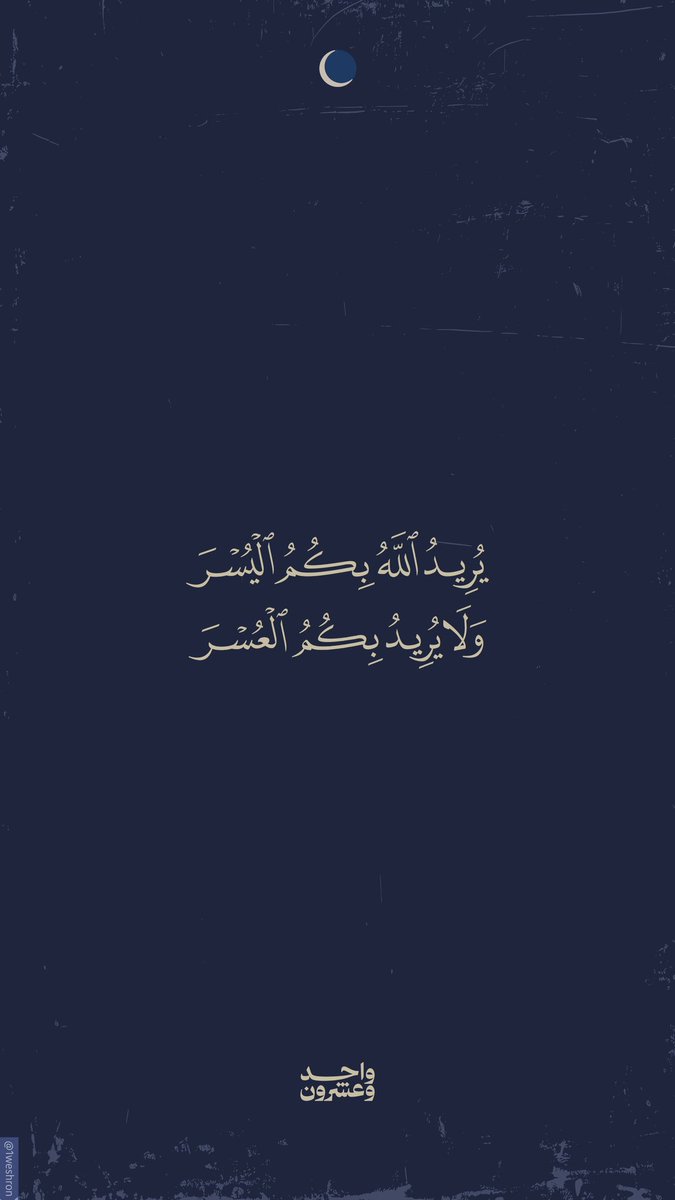 يُرِيدُ ٱللَّهُ بِكُمُ ٱلۡيُسۡرَ
وَلَا يُرِيدُ بِكُمُ ٱلۡعُسۡرَ
واحد
وعشرون
@1weshron